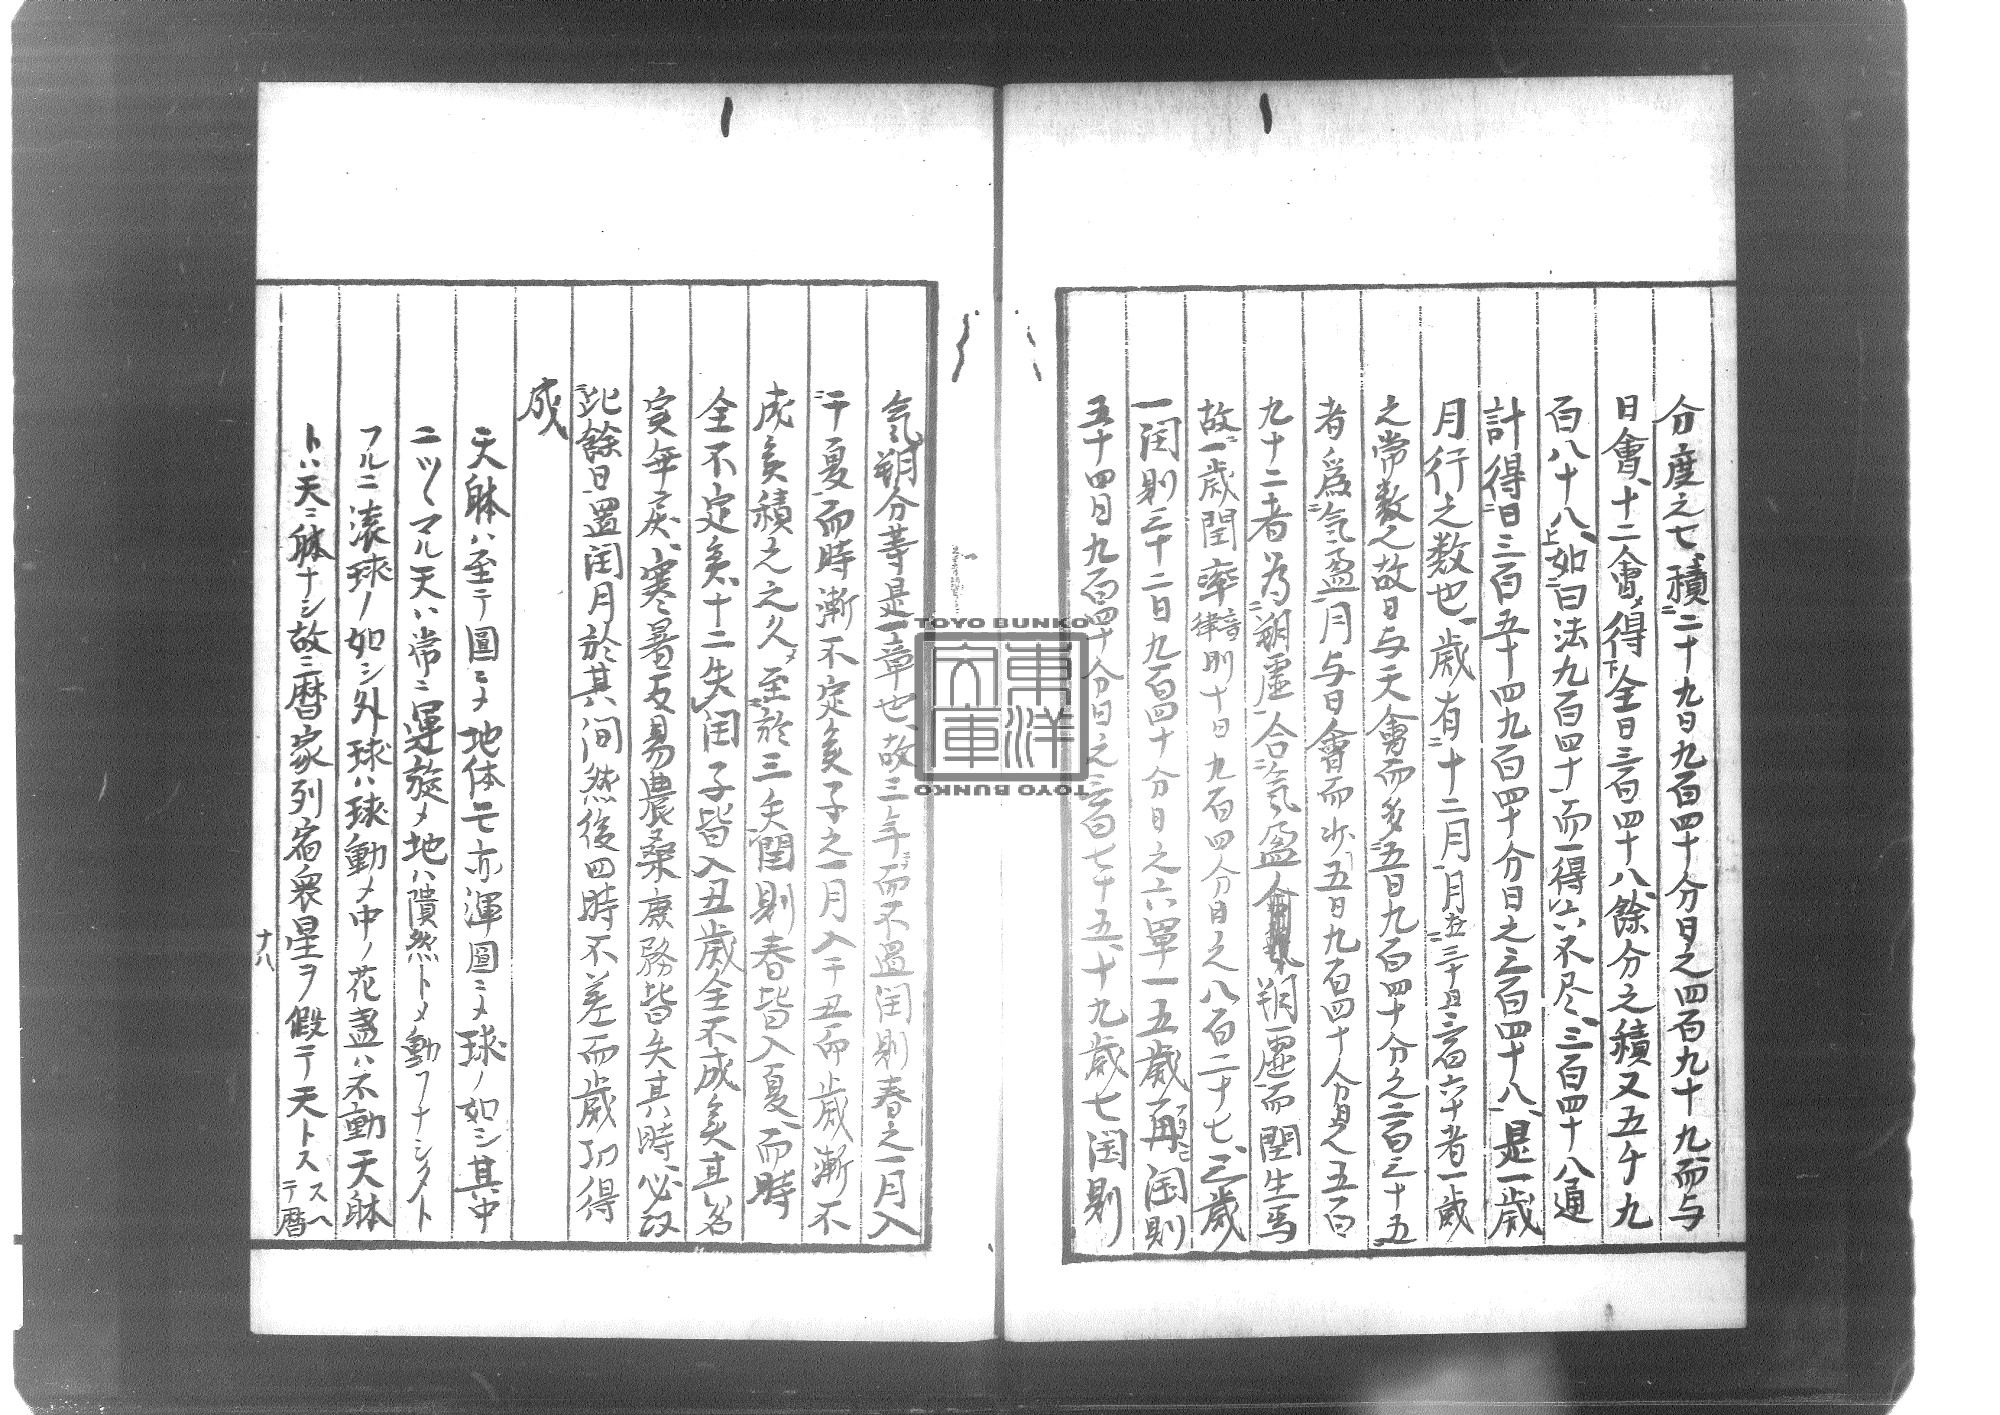 分度之七、積ニ二十九日九百四十分日之四百九十九而与
日會、十二會メ得下全日三百四十八、餘分之積又五千九
百八十八上、如ニ曰法九百四十一而一得レ六不尽、三百四十八通
計得ニ日三百五十四九百四十分日之三百四十八、是一歳
月行之数也、歳有ニ十二月一月在ニ三十日三百六十者一歳
之常数之故日与天會而多ニ五日九百四十分之二百三十五
者爲ニ氣盈一月与日會而少五日九百四十分日之五百
九十二者為ニ朔虚一合ニ氣盈朔虚而閏生焉
故ニ一歳閏率音律則十日九百四分日之八百二十七、三歳
一閏則三十二日九百四十分日之六單一五歳再閏則
五十四日九百四十分日之三百七十五、十九歳七閏則
氣朔分等是一章也、故三年而不置閏則春之一月入
ニ于夏一而時漸不定矣子之一月入于丑而歳漸不
成矣積之之久メ至ニ於三失閏則春皆入夏、而時
全不定矣、十二失閏子皆入丑歳全不成矣其名
実乖戻、寒暑反易農桑庶務皆失其時必以
此餘日置閏月於其間然後四時不差而歳功得
成
天躰ハ至テ圓ニメ地体モ亦渾圓ニメ球ノ如シ其中
フルニ滾球ノ如シ外球ハ球動メ中ノ花盞ハ不動天躰
トハ天ニ躰ナシ故ニ暦家列宿衆星ヲ假テ天トス
十八
TOYO BUNKO
東洋文庫
TOYO BUNKO